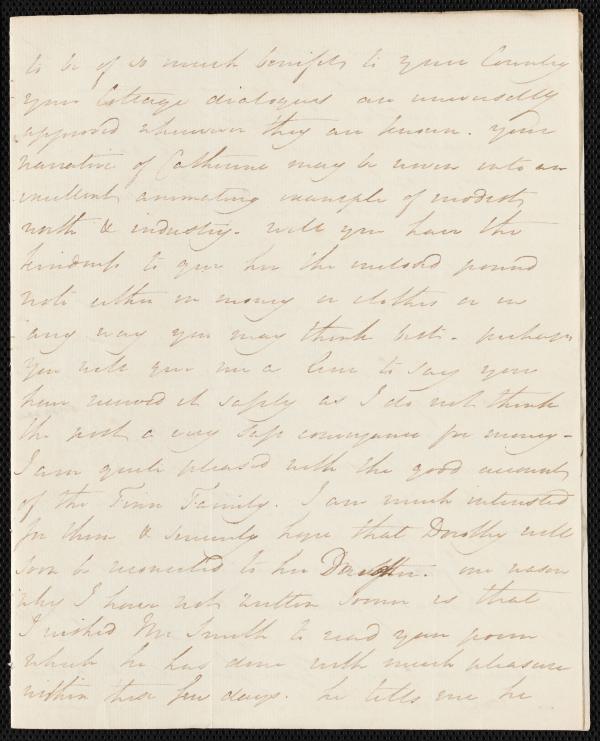 to be of so much benefit to your Country
your Cottage dialogues are universally
approved wherever they are known. Your
narrative of Catherine may be woven into an
excellent animating example of modest
worth & industry. will you have the
kindness to give her the inclosed pound
note either in money or clothes or in
any way you may think best. perhaps
you will give me a line to say you
have received it safely as I do not think
the post a very safe conveyance for money -
I am quite pleased with the good account
of the Finn Family. I am much interested
for them & sincerely hope that Dorothy will
soon be reconciled to her one reason
why I have not written sooner is that
I wished Mr Smith to read your poem
which he has done with much pleasure
within these few days. he tells me he